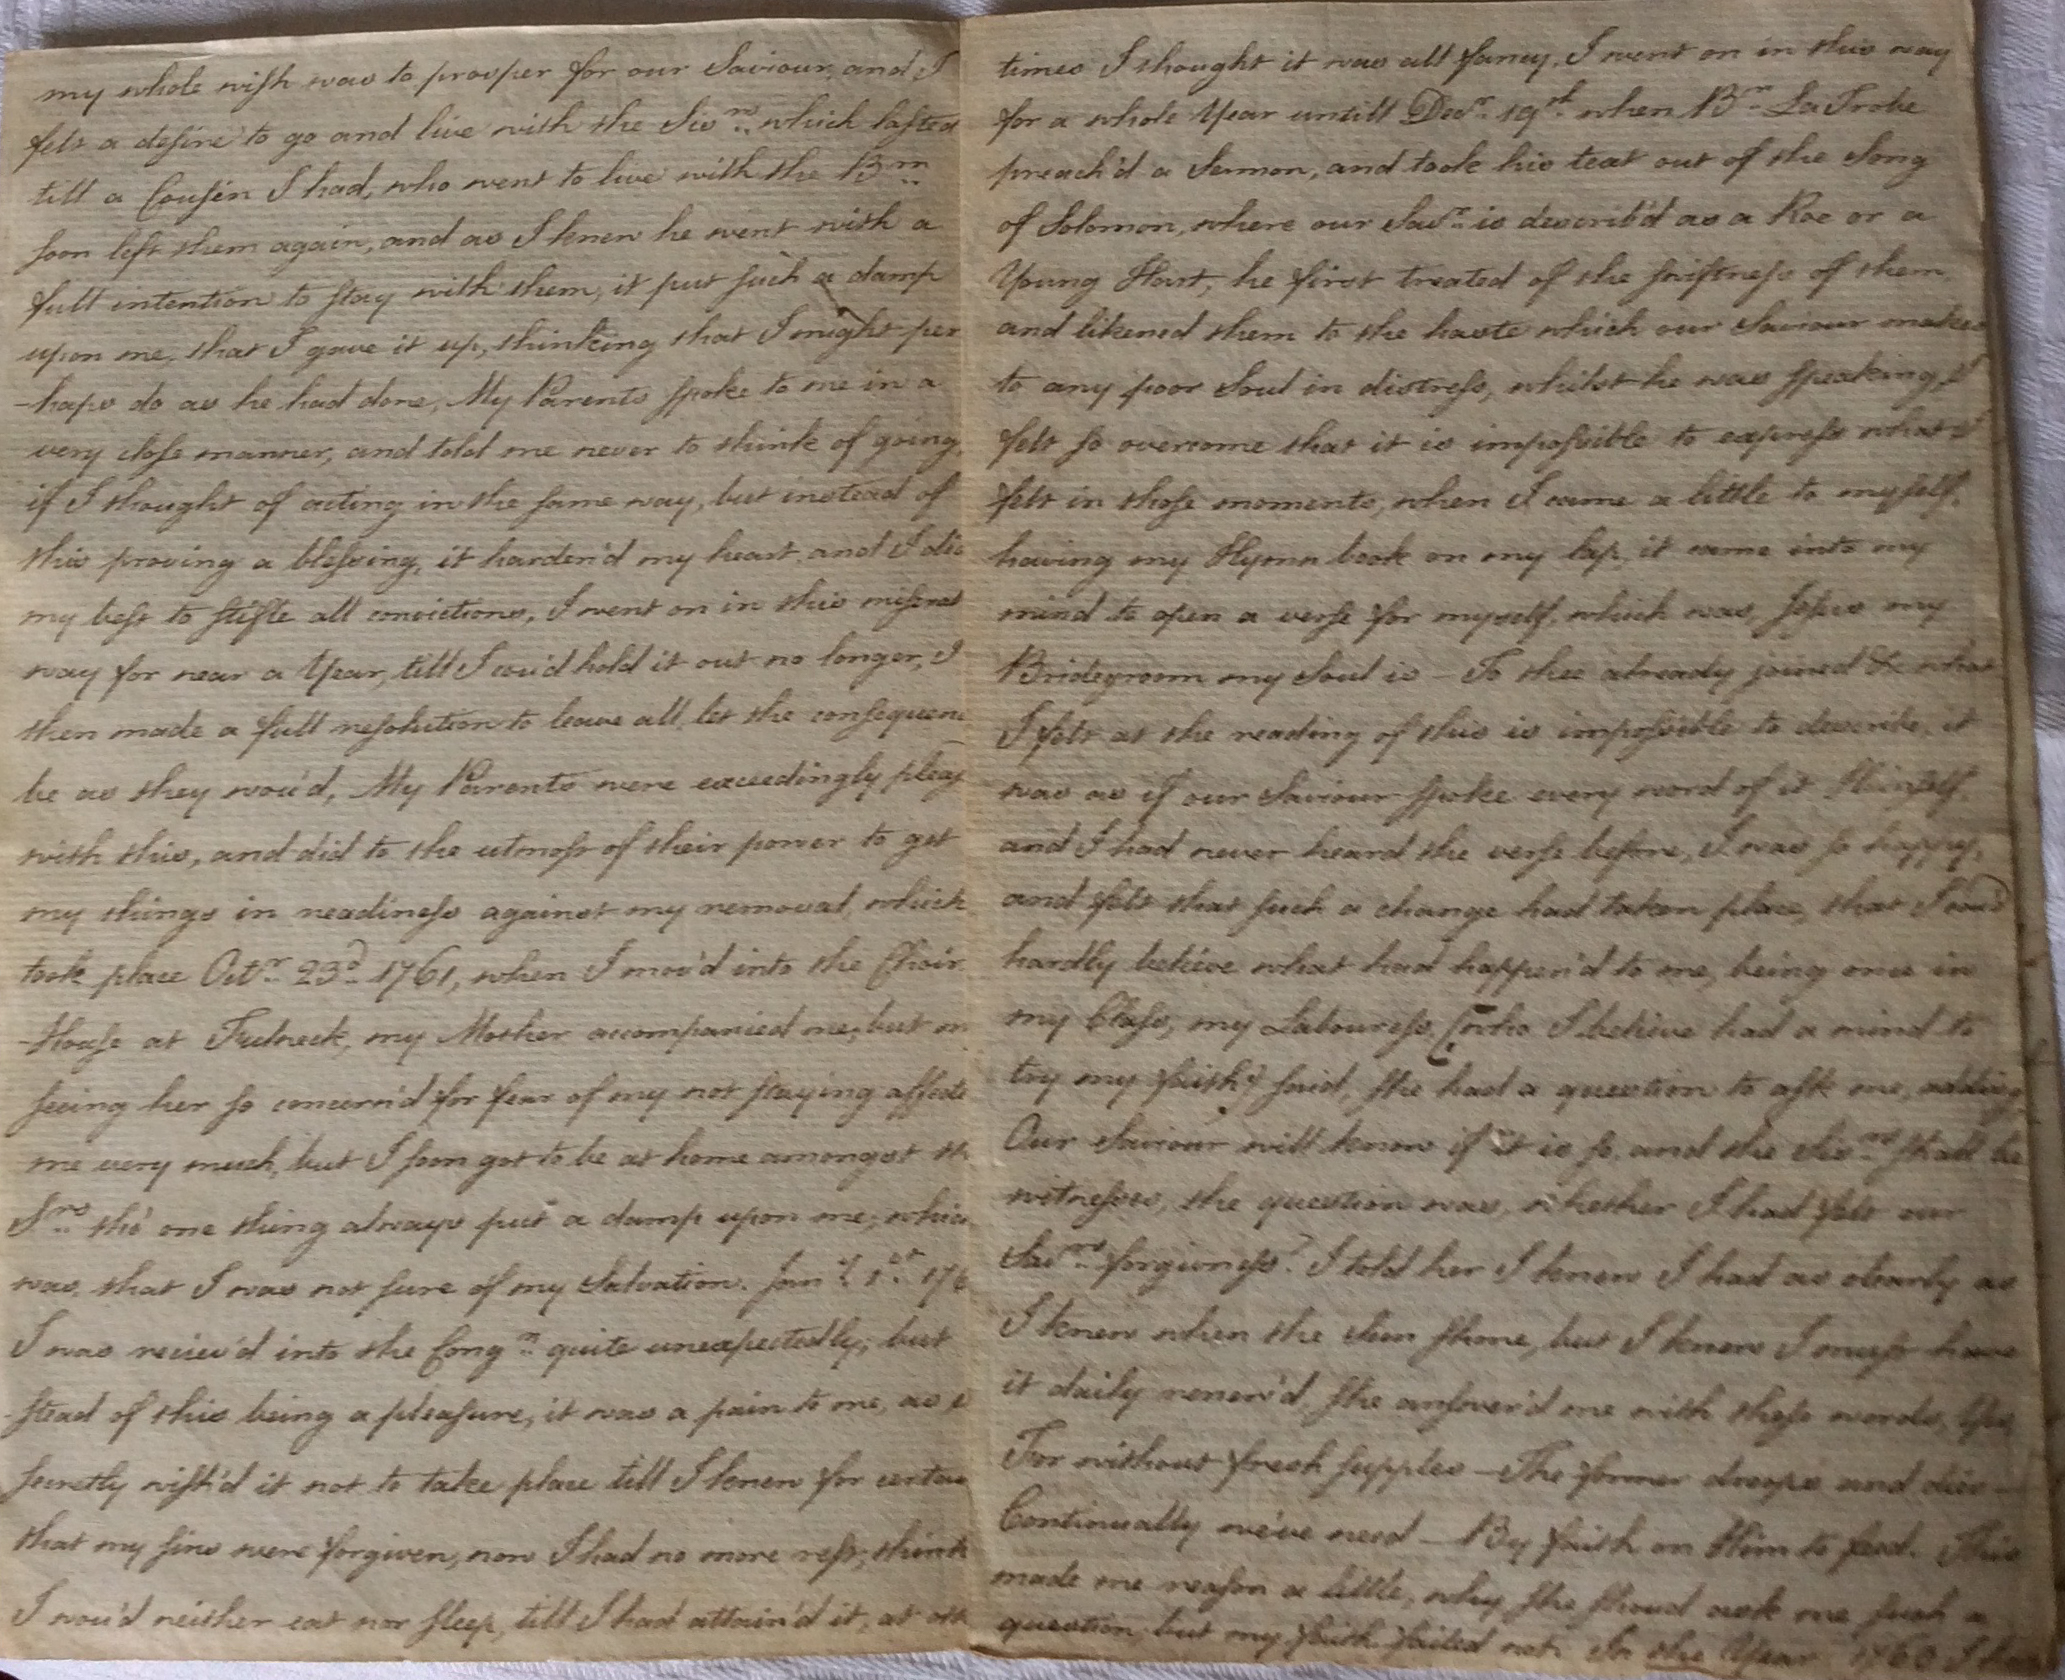 my whole wish was to prosper for our Saviour, and I
felt a desire to go and live with the Sisrs. which lasted
till a Cousin I had, who went to live with the Brn.
soon left them again, and as I knew he went with a
full intention to stay with them, it put such a damp
upon me, that I gave it up, thinking that I might per
-haps do as he had done, My Parents spoke to me in a
very close manner, and told me never to think of going
if I thought of acting in the same way, but instead of
this proving a blessing, it harden'd my heart, and I did
my best to stifle all convictions, I went on in this miserab
way for near a Year, till I cou'd hold it out no longer, I
then made a full resolution to leave all, let the consequen
be as they wou'd, My Parents were exceedingly pleas
with this, and did to the utmost of their power to get
my things in readiness against my removal, which
took place Octr. 23d. 1761, when I mov'd into the Choir
-House at Fulneck, my Mother accompanied me, but
seeing her so concern'd for fear of my not staying affecte
me very much, but I soon got to be at home amongst th
Srs. tho' one thing always put a damp upon me, whic
was, that I was not sure of my Salvation. Jany. 1st. 176
I was reciev'd into the Congn. quite unexpectedly; but
-stead of this being a pleasure, it was a pain to me, as
secretly wish'd it not to take place till I knew for certain
that my sins were forgiven, now I had no more rest, think
I wou'd neither eat nor sleep, till I had attain'd it, at oth
times I thought it was all fancy. I went on in this way
for a whole Year untill Decr. 19th when Br. La Trobe
preach'd a Sermon, and took his text out of the Song
of Solomon, where our Savr. is describ'd as a Roe or a
Young Hart, he first treated of the swiftness of them
and likened them to the haste which our Saviour makes
to any poor Soul in distress, whilst he was speaking I
felt so overcome that it is impossible to express what I
felt in those moments, when I came a little to myself,
having my Hymn book on my lap, it came into my
mind to open a verse for myself, which was, Jesus my
Bridegroom my Soul is – To thee already joined &c what
I felt at the reading of this is impossible to describe, it
was as if our Saviour spoke every word of it Himself,
and I had never heard the verse before, I was so happy,
and felt that such a change had taken place, that I cou'd
hardly believe what had happen'd to me, being once in
my Class, my Labouress, (who I believe had a mind to
try my faith) said, she had a question to ask me, adding,
Our Saviour will know if it is so, and the Sisrs. shall be
witnesses, the question was, whether I had felt our
Savrs. forgivness? I told her I knew I had as clearly as
I knew when the Sun shone, but I knew I must have
it daily renew'd, she answer'd me with these words, Yes
For without fresh supples – The former droops and dies –
Continually we've need – By faith on Him to feed. This
made me reason a little, why she shoud ask me such a
question, but my faith failed not. In the Year 1760 I